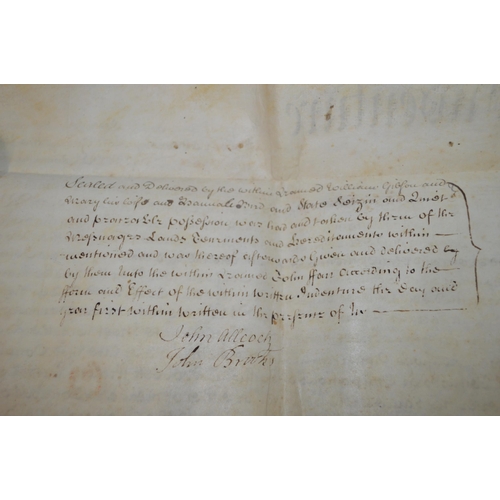 Sealed and Delivered by the within Named William Gibson and
Mary his wife and Hannah and State Seizin and Quiet
and peaceable possession was had and taken by them of the
Messuages Lands Tenements and Hereditaments within
mentioned and was thereof afterwards Given and delivered
by them Unto the within Named John ffarr According to the
fform and Effect of the within written Indenture the Day and
year first within written in the presence of Us
John Allcock
John Brooks